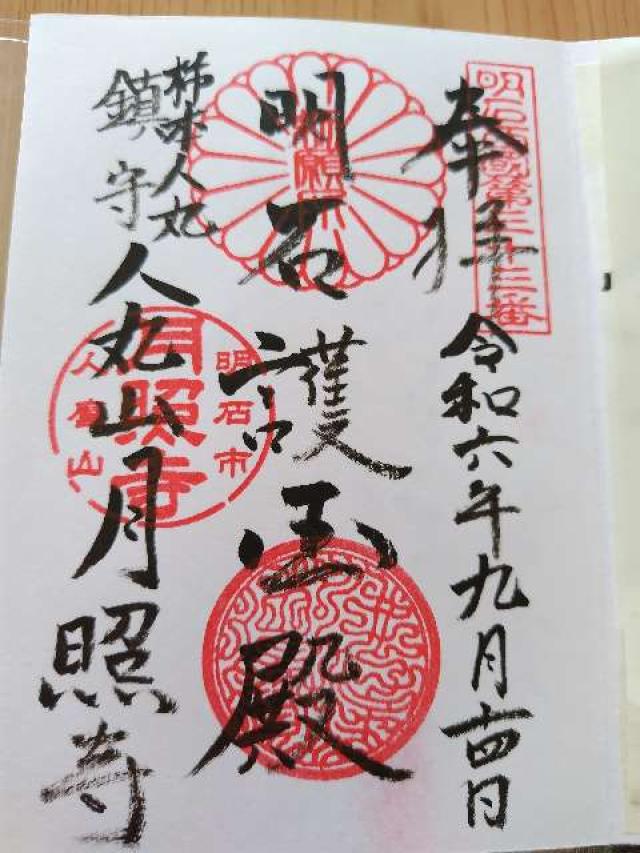 奉拝
令和六年九月十四日
明石西国第三十三番
明石護国殿
勅願所
柿本人丸
鎮守
人丸山月照寺
明石市
人磨山
月照寺